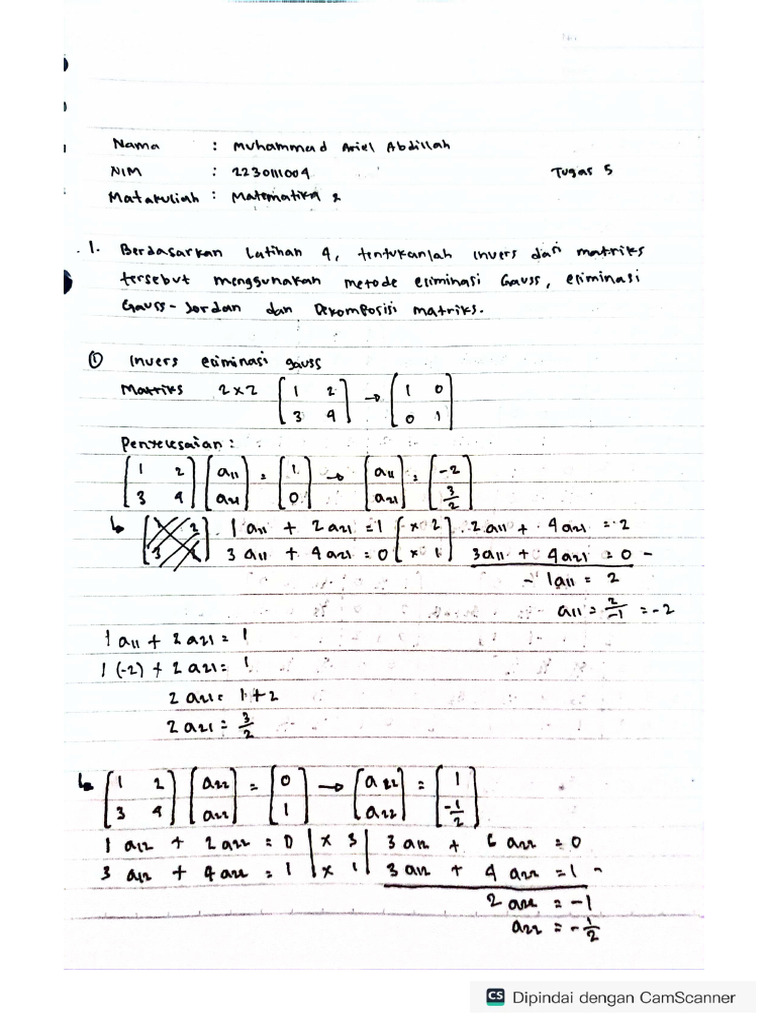 Nama : Muhammad Ariel Abdillah
NIM : 2230111004 Tugas 5
Matakuliah : Matematika 2
1. Berdasarkan Latihan 4, tentukanlah invers dari matriks
tersebut menggunakan metode eliminasi Gauss, eliminasi
Gauss-Jordan dan Dekomposisi matriks.
① Invers eliminasi gauss
Matriks 2x2 [1 2; 3 4] → [1 0; 0 1]
Penyelesaian :
[1 2; 3 4] [a11; a21] = [1; 0] → [a11; a21] = [-2; 3/2]
↳ 1 a11 + 2 a21 = 1 | x 2 | 2 a11 + 4 a21 = 2
3 a11 + 4 a21 = 0 | x 1 | 3a11 + 4a21 = 0 -
- 1a11 = 2
a11 = 2/-1 = -2
1 a11 + 2 a21 = 1
1 (-2) + 2 a21 = 1
2 a21 = 1 + 2
2 a21 = 3/2
↳ [1 2; 3 4] [a22; a22] = [0; 1] → [a22; a22] = [1; -1/2]
1 a12 + 2 a22 = 0 | x 3 | 3 a12 + 6 a22 = 0
3 a12 + 4 a22 = 1 | x 1 | 3 a12 + 4 a22 = 1 -
2 a22 = -1
a22 = -1/2
CS Dipindai dengan CamScanner